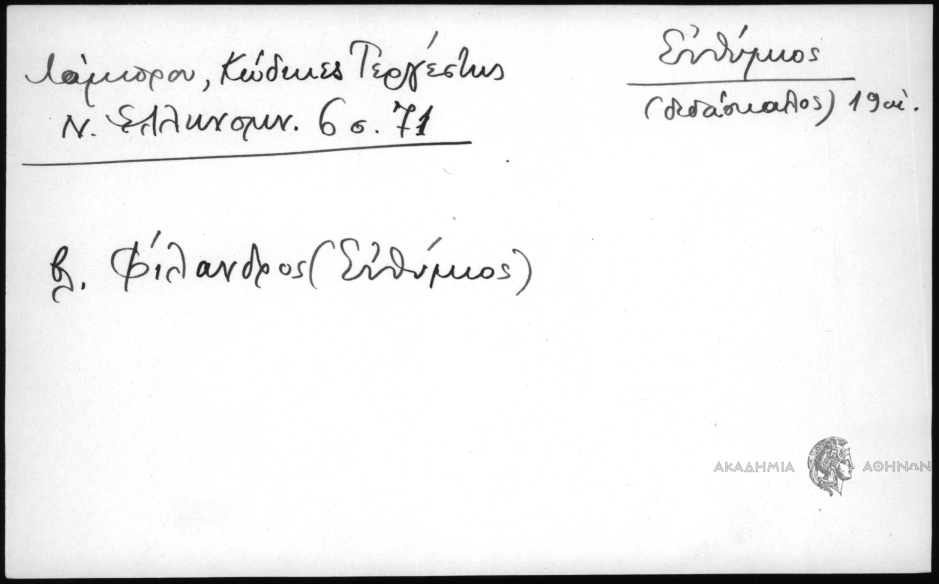 Λάμπρου, Κώδικες Τεργέστης
Ν. Ἑλληνομν. 6 σ. 71
Εὐθύμιος
(διδάσκαλος) 19 αἰ.
βλ. Φίλανδρος (Εὐθύμιος)
ΑΚΑΔΗΜΙΑ ΑΘΗΝΩΝ